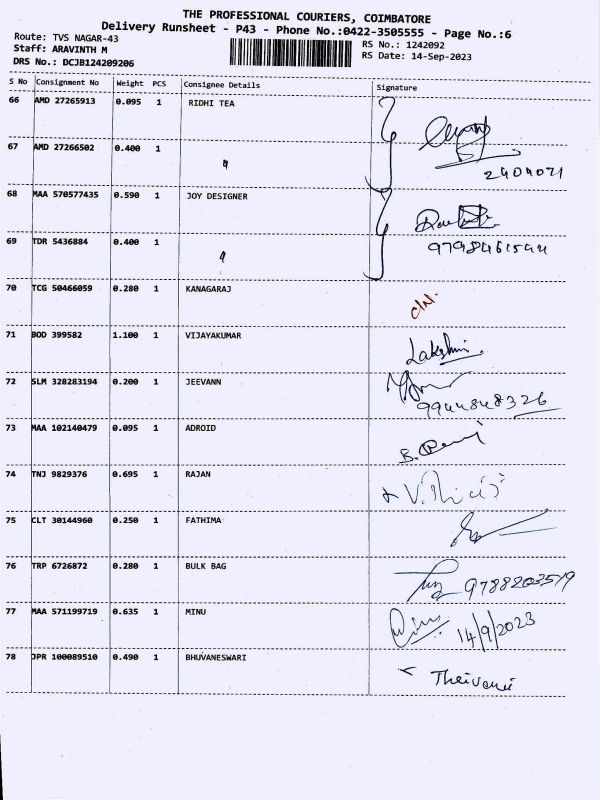 THE PROFESSIONAL COURIERS, COIMBATORE
Delivery Runsheet - P43 - Phone No.:0422-3505555 - Page No.:6
Route: TVS NAGAR-43
Staff: ARAVINTH M
DRS No.: DCJB124209206
RS No.: 1242092
RS Date: 14-Sep-2023
S No Consignment No Weight PCS Consignee Details Signature
66 AMD 27265913 0.095 1 RIDHI TEA
67 AMD 27266502 0.400 1
2404071
68 MAA 570577435 0.590 1 JOY DESIGNER
69 TDR 5436884 0.400 1
9798461544
70 TCG 50466059 0.280 1 KANAGARAJ
71 BOD 399582 1.100 1 VIJAYAKUMAR Lakshmi
72 SLM 328283194 0.200 1 JEEVANN
9944848326
73 MAA 102140479 0.095 1 ADROID
74 TNJ 9829376 0.695 1 RAJAN
75 CLT 30144960 0.250 1 FATHIMA
76 TRP 6726872 0.280 1 BULK BAG 9788203579
77 MAA 571199719 0.635 1 MINU 14/9/2023
78 JPR 100089510 0.490 1 BHUVANESWARI